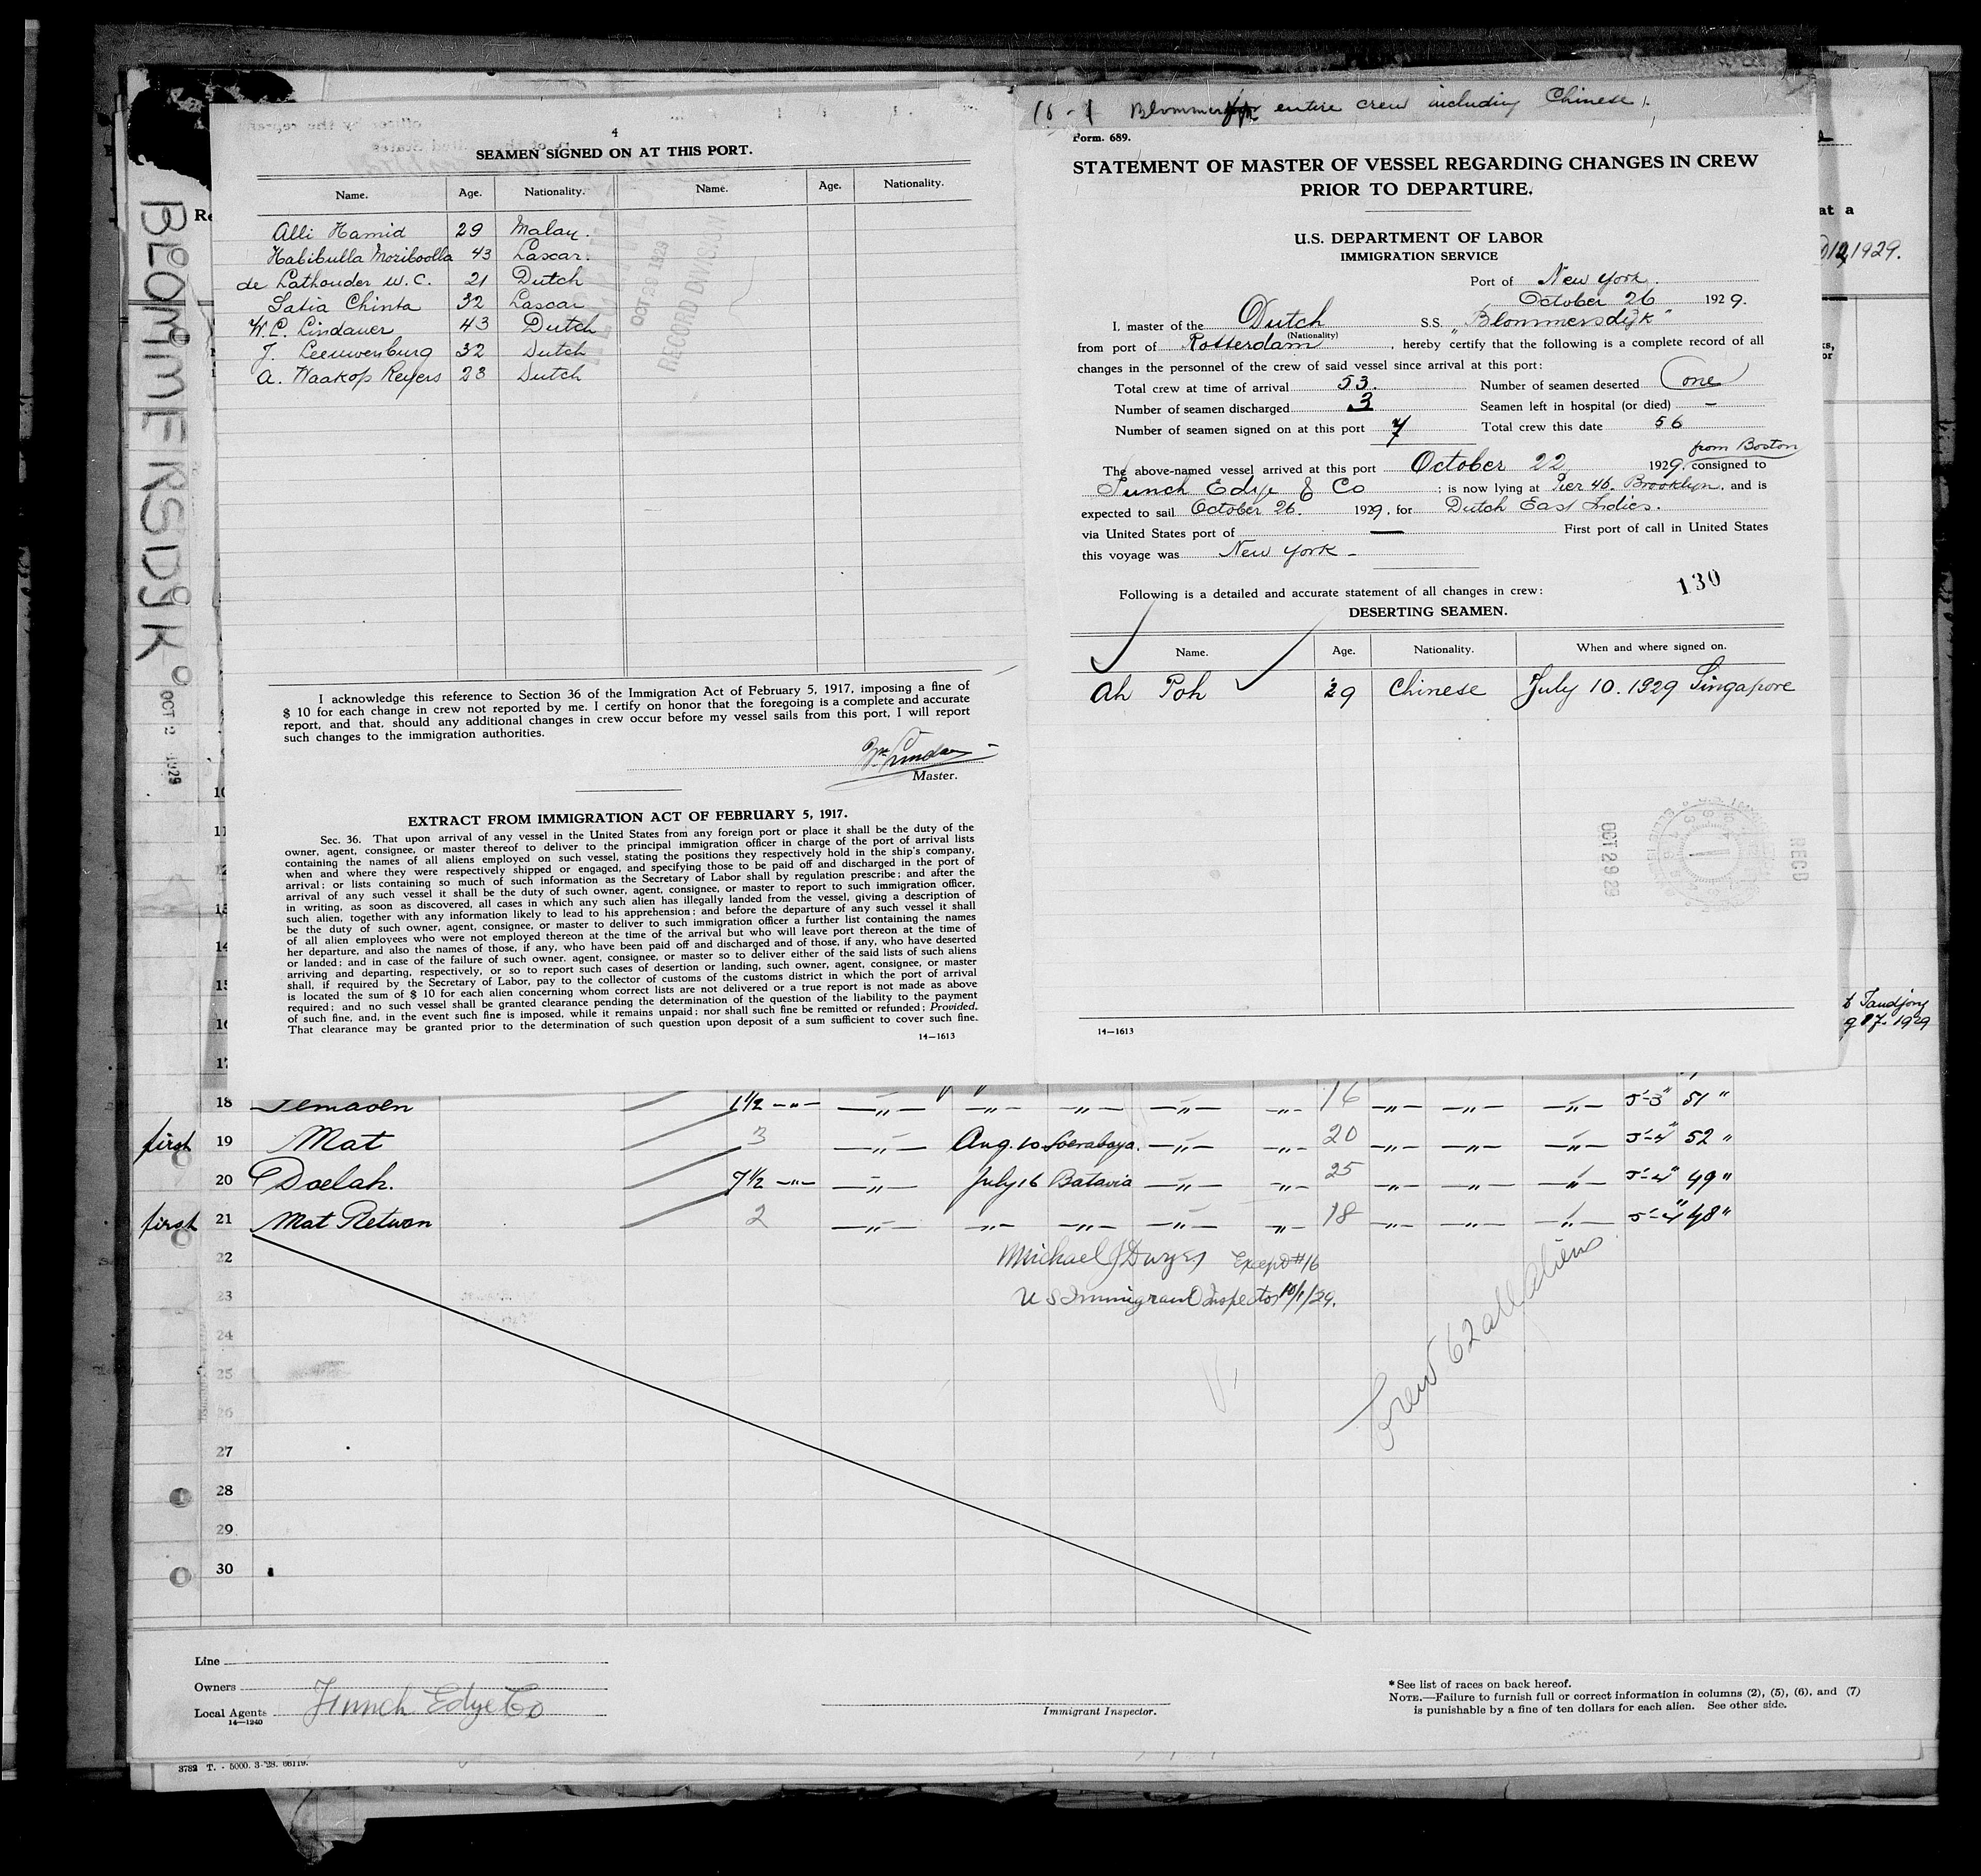 BLOMMERSDYK
OCT 2 1929
4
SEAMEN SIGNED ON AT THIS PORT.
Name. Age. Nationality. Name. Age. Nationality.
Alli Hamid 29 Malay.
Habibulla Moriboolla 43 Lascar.
de Lathouder W. C. 21 Dutch
Satia Chinta 32 Lascar
W. C. Lindauer 43 Dutch
J. Leeuwenburg 32 Dutch
A. Waakop Reyers 23 Dutch
OCT 29 1929
RECORD DIVISION
I acknowledge this reference to Section 36 of the Immigration Act of February 5, 1917, imposing a fine of
$ 10 for each change in crew not reported by me. I certify on honor that the foregoing is a complete and accurate
report, and that, should any additional changes in crew occur before my vessel sails from this port, I will report
such changes to the immigration authorities.
Master.
EXTRACT FROM IMMIGRATION ACT OF FEBRUARY 5, 1917.
Sec. 36. That upon arrival of any vessel in the United States from any foreign port or place it shall be the duty of the
owner, agent, consignee, or master thereof to deliver to the principal immigration officer in charge of the port of arrival lists
containing the names of all aliens employed on such vessel, stating the positions they respectively hold in the ship's company,
when and where they were respectively shipped or engaged, and specifying those to be paid off and discharged in the port of
arrival; or lists containing so much of such information as the Secretary of Labor shall by regulation prescribe; and after the
arrival of any such vessel it shall be the duty of such owner, agent, consignee, or master to report to such immigration officer,
in writing, as soon as discovered, all cases in which any such alien has illegally landed from the vessel, giving a description of
such alien, together with any information likely to lead to his apprehension; and before the departure of any such vessel it shall
be the duty of such owner, agent, consignee, or master to deliver to such immigration officer a further list containing the names
of all alien employees who were not employed thereon at the time of the arrival but who will leave port thereon at the time of
her departure, and also the names of those, if any, who have been paid off and discharged and of those, if any, who have deserted
or landed; and in case of the failure of such owner, agent, consignee, or master so to deliver either of the said lists of such aliens
arriving and departing, respectively, or so to report such cases of desertion or landing, such owner, agent, consignee, or master
shall, if required by the Secretary of Labor, pay to the collector of customs of the customs district in which the port of arrival
is located the sum of $ 10 for each alien concerning whom correct lists are not delivered or a true report is not made as above
required; and no such vessel shall be granted clearance pending the determination of the question of the liability to the payment
of such fine, and, in the event such fine is imposed, while it remains unpaid; nor shall such fine be remitted or refunded; Provided,
That clearance may be granted prior to the determination of such question upon deposit of a sum sufficient to cover such fine.
14—1613
entire crew including Chinese
Form. 689.
STATEMENT OF MASTER OF VESSEL REGARDING CHANGES IN CREW
PRIOR TO DEPARTURE.
U.S. DEPARTMENT OF LABOR
IMMIGRATION SERVICE
Port of New York.
October 26 1929.
I, master of the Dutch S.S. "Blommersdijk"
(Nationality)
from port of Rotterdam, hereby certify that the following is a complete record of all
changes in the personnel of the crew of said vessel since arrival at this port:
Total crew at time of arrival 53. Number of seamen deserted one
Number of seamen discharged 3 Seamen left in hospital (or died) —
Number of seamen signed on at this port 7 Total crew this date 56
from Boston
The above-named vessel arrived at this port October 22 1929, consigned to
Funch Edye & Co ; is now lying at Pier 46. Brooklyn, and is
expected to sail October 26. 1929, for Dutch East Indies.
via United States port of — First port of call in United States
this voyage was New York -
130
Following is a detailed and accurate statement of all changes in crew:
DESERTING SEAMEN.
Name. Age. Nationality. When and where signed on.
Ah Poh 29 Chinese July 10. 1929 Singapore
OCT 29 29
REC'D
14—1613
at a
1929.
Tandjong
17. 1929
18 1½ -"- -"- -"- -"- -"- -"- 16 -"- -"- -"- 5'-3" 51 "
first 19 Mat 3 -"- Aug. 10 Soerabaya. -"- -"- 20 -"- -"- -"- 5'-4" 52 "
20 Doelah. 7½ -"- -"- July 16 Batavia -"- -"- 25 -"- -"- -"- 5'-4" 49 "
first 21 Mat Retwan 2 -"- -"- -"- -"- -"- 18 -"- -"- -"- 5'-4" 48 "
22
23
24
25
26
27
28
29
30
Michael J Dwyer Except #16
US Immigrant Inspector 10/1/29.
Crew 62 all aliens
Line
Owners
Local Agents Funch Edye Co
14—1240
Immigrant Inspector.
*See list of races on back hereof.
NOTE.—Failure to furnish full or correct information in columns (2), (5), (6), and (7)
is punishable by a fine of ten dollars for each alien. See other side.
3782 T. - 5000. 3-28. 66119.